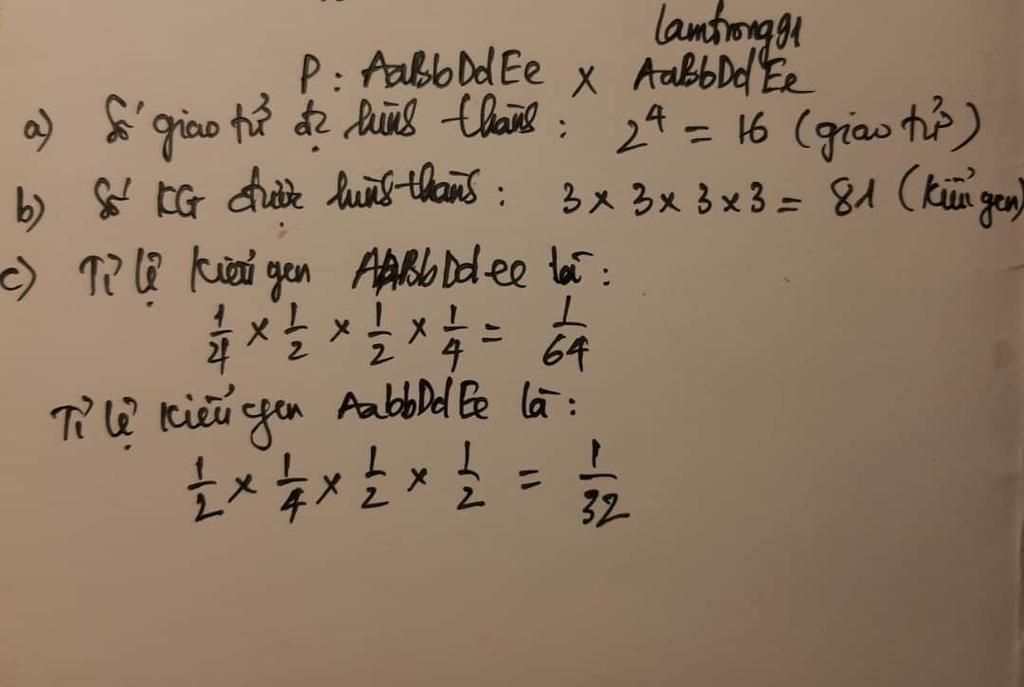 lamtrong91
P: AaBbDdEe x AaBbDdEe
a) Số giao tử đc hình thành: 2⁴ = 16 (giao tử)
b) Số KG được hình thành: 3 x 3 x 3 x 3 = 81 (Kiểu gen)
c) Tỉ lệ kiểu gen AABbDdee là:
1/4 x 1/2 x 1/2 x 1/4 = 1/64
Tỉ lệ kiểu gen AabbDdEe là:
1/2 x 1/4 x 1/2 x 1/2 = 1/32